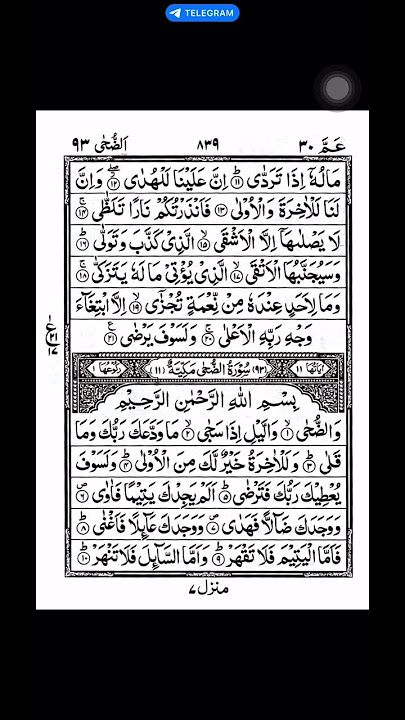 TELEGRAM
عَمَّ ٣٠
٨٣٩
اَلضُّحٰى ٩٣
مَالُهٗۤ اِذَا تَرَدّٰى ؕ﴿۱۱﴾ اِنَّ عَلَيْنَا لَلْهُدٰى ﴿۱۲﴾ۖ وَاِنَّ
لَنَا لَلْاٰخِرَةَ وَالْاُوْلٰى ﴿۱۳﴾ فَاَنْذَرْتُكُمْ نَارًا تَلَظّٰى ﴿۱۴﴾ۚ
لَا يَصْلٰىهَاۤ اِلَّا الْاَشْقَى ﴿۱۵﴾ۙ الَّذِىْ كَذَّبَ وَتَوَلّٰى ؕ﴿۱۶﴾
وَسَيُجَنَّبُهَا الْاَتْقَى ﴿۱۷﴾ۙ الَّذِىْ يُؤْتِىْ مَالَهٗ يَتَزَكّٰى ﴿۱۸﴾ۚ
وَمَا لِاَحَدٍ عِنْدَهٗ مِنْ نِّعْمَةٍ تُجْزٰٓى ﴿۱۹﴾ۙ اِلَّا ابْتِغَآءَ
وَجْهِ رَبِّهِ الْاَعْلٰى ﴿۲۰﴾ۚ وَلَسَوْفَ يَرْضٰى ﴿۲۱﴾
ع
٢١
١٧
اٰيَاتُهَا ١١ (٩٣) سُوْرَةُ الضُّحٰى مَكِّيَّةٌ (١١) رُكُوْعُهَا ١
بِسْمِ اللّٰهِ الرَّحْمٰنِ الرَّحِيْمِ
وَالضُّحٰى ﴿۱﴾ۙ وَالَّيْلِ اِذَا سَجٰى ﴿۲﴾ۙ مَا وَدَّعَكَ رَبُّكَ وَمَا
قَلٰى ؕ﴿۳﴾ وَلَلْاٰخِرَةُ خَيْرٌ لَّكَ مِنَ الْاُوْلٰى ؕ﴿۴﴾ وَلَسَوْفَ
يُعْطِيْكَ رَبُّكَ فَتَرْضٰى ؕ﴿۵﴾ اَلَمْ يَجِدْكَ يَتِيْمًا فَاٰوٰى ﴿۶﴾
وَوَجَدَكَ ضَآلًّا فَهَدٰى ﴿۷﴾ وَوَجَدَكَ عَآئِلًا فَاَغْنٰى ؕ﴿۸﴾
فَاَمَّا الْيَتِيْمَ فَلَا تَقْهَرْ ؕ﴿۹﴾ وَاَمَّا السَّآئِلَ فَلَا تَنْهَرْ ؕ﴿۱۰﴾
منزل ٧